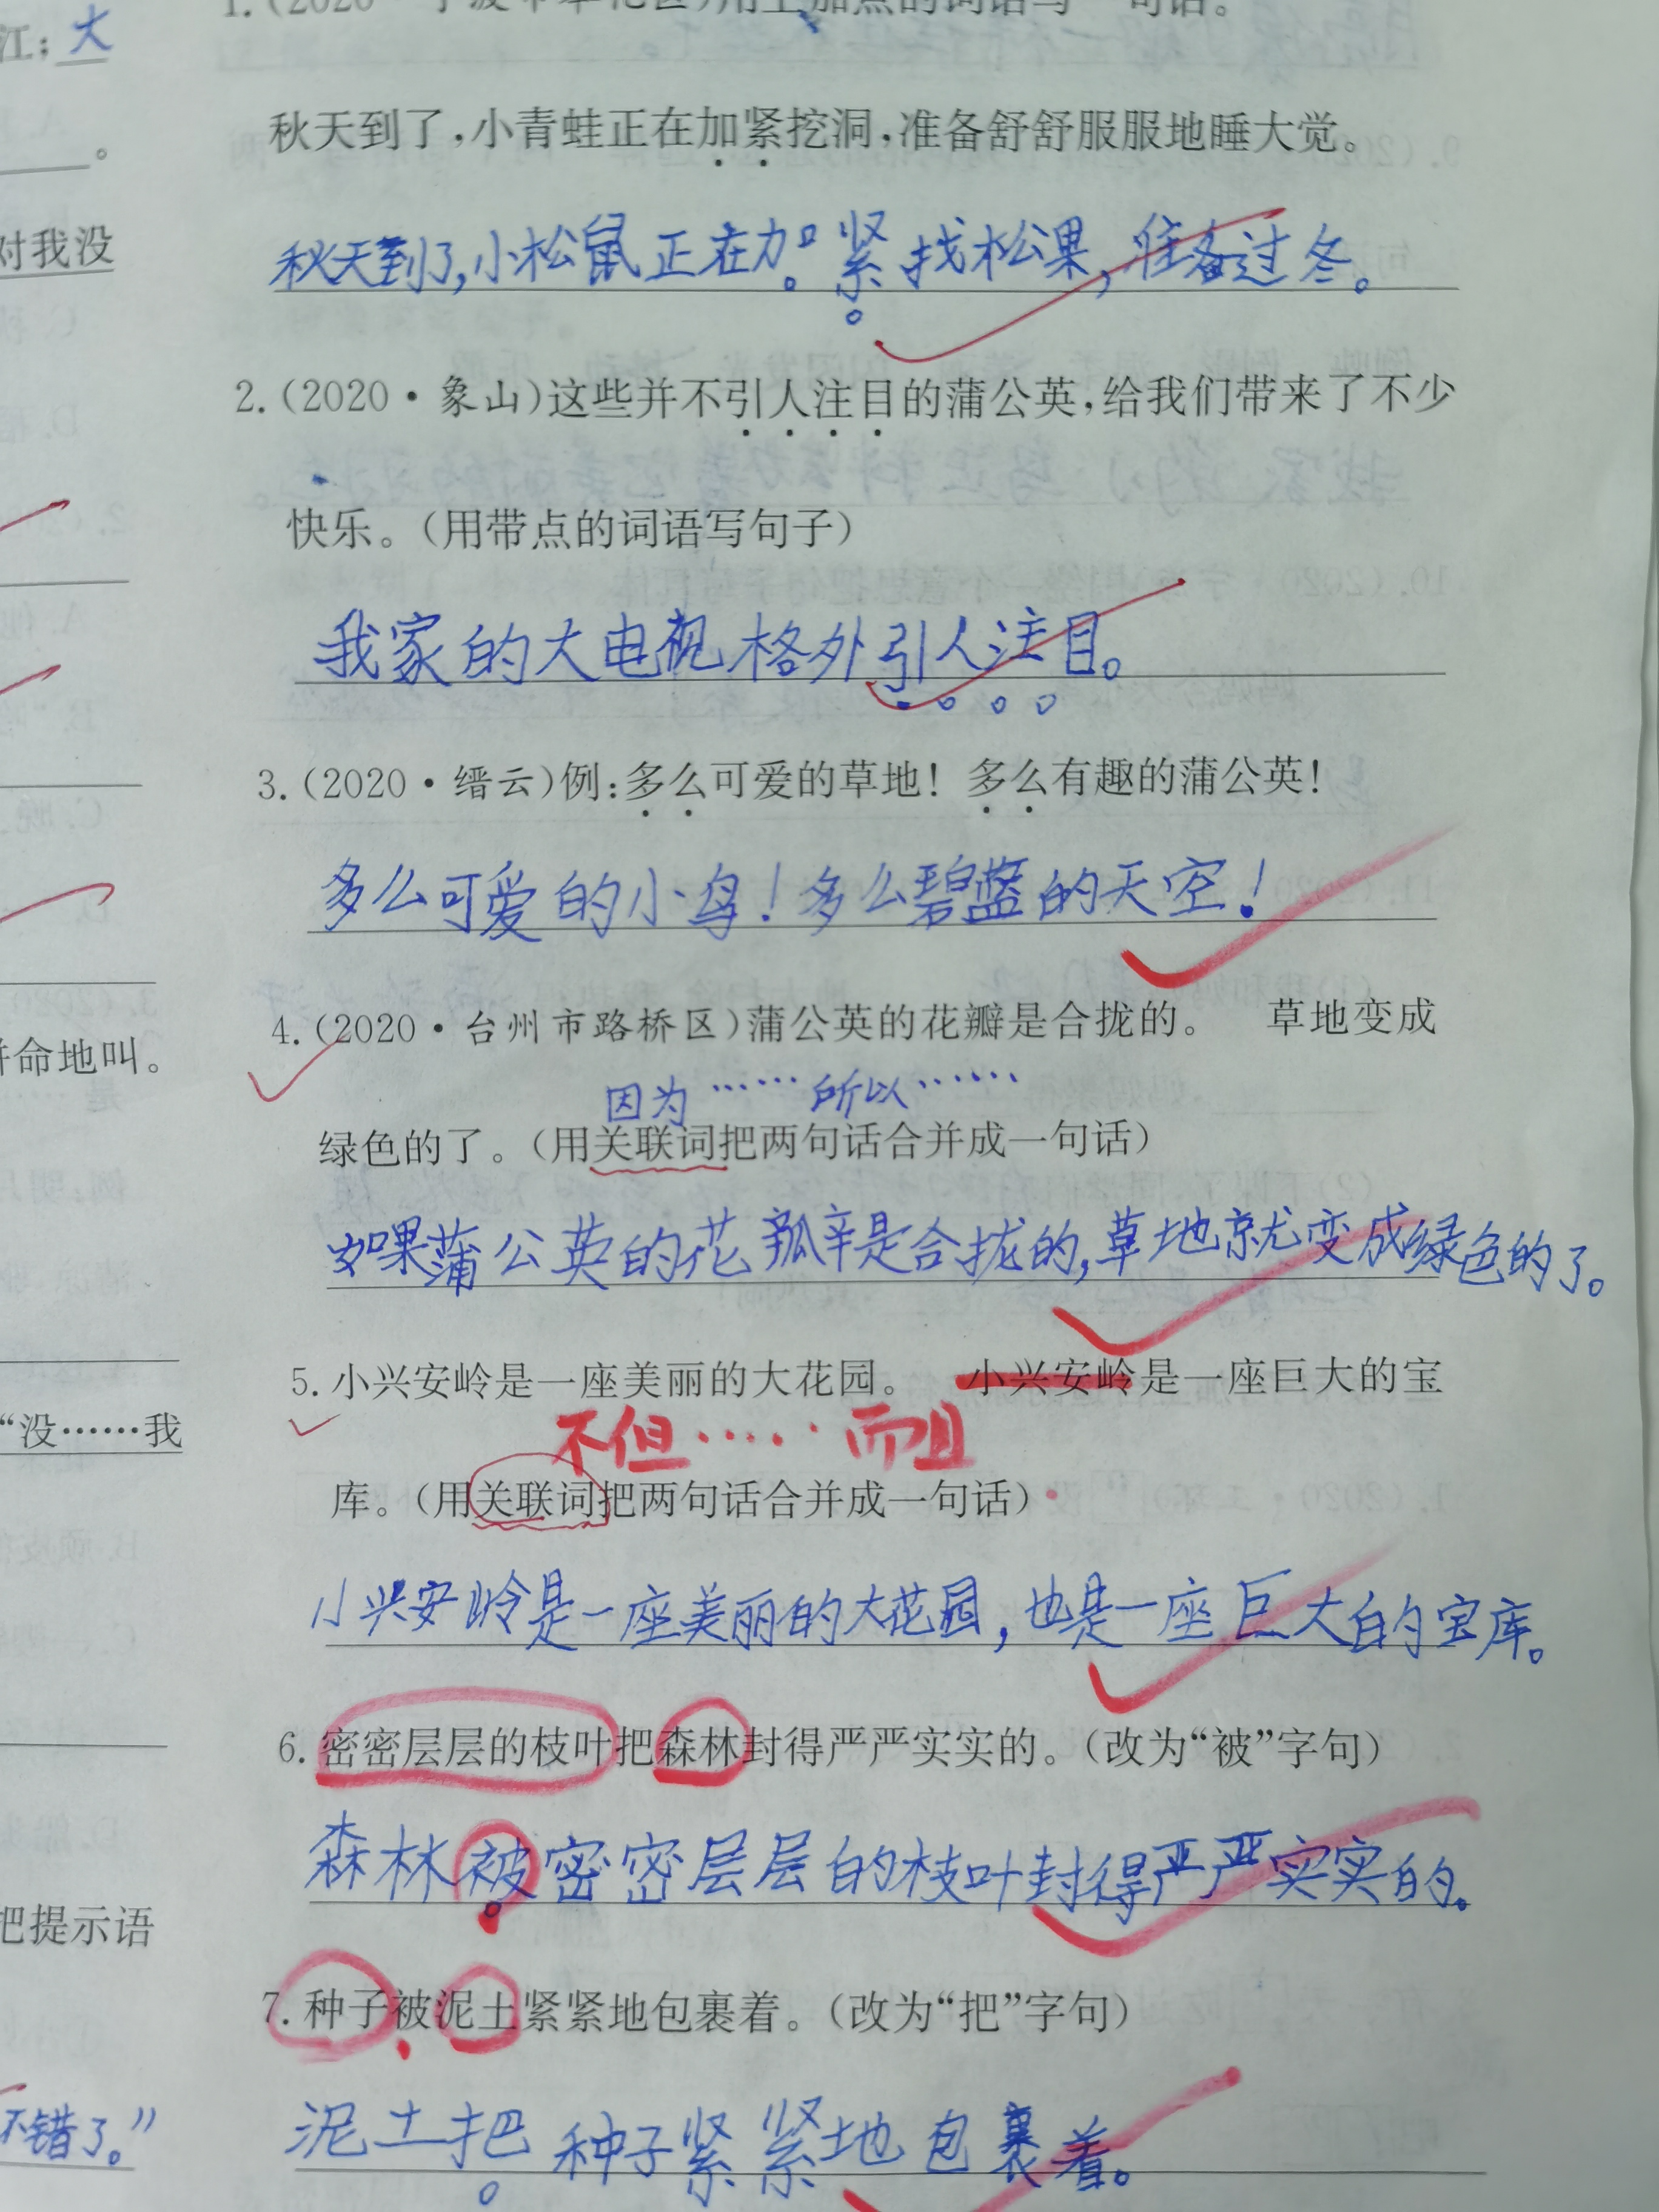 江;大
1.(2020·宁波市奉化区)用上加点的词语写一句话。
秋天到了,小青蛙正在加紧挖洞,准备舒舒服服地睡大觉。
。
秋天到了,小松鼠正在加紧找松果,准备过冬。
对我没
2.(2020·象山)这些并不引人注目的蒲公英,给我们带来了不少
快乐。(用带点的词语写句子)
我家的大电视格外引人注目。
3.(2020·缙云)例:多么可爱的草地! 多么有趣的蒲公英!
多么可爱的小鸟!多么碧蓝的天空!
4.(2020·台州市路桥区)蒲公英的花瓣是合拢的。 草地变成
命地叫。
因为……所以……
绿色的了。(用关联词把两句话合并成一句话)
如果蒲公英的花瓣是合拢的,草地就变成绿色的了。
5.小兴安岭是一座美丽的大花园。 小兴安岭是一座巨大的宝
“没……我
不但……而且
库。(用关联词把两句话合并成一句话)
小兴安岭是一座美丽的大花园,也是一座巨大的宝库。
6.密密层层的枝叶把森林封得严严实实的。(改为“被”字句)
森林被密密层层的枝叶封得严严实实的。
把提示语
7.种子被泥土紧紧地包裹着。(改为“把”字句)
不错了。”
泥土把种子紧紧地包裹着。